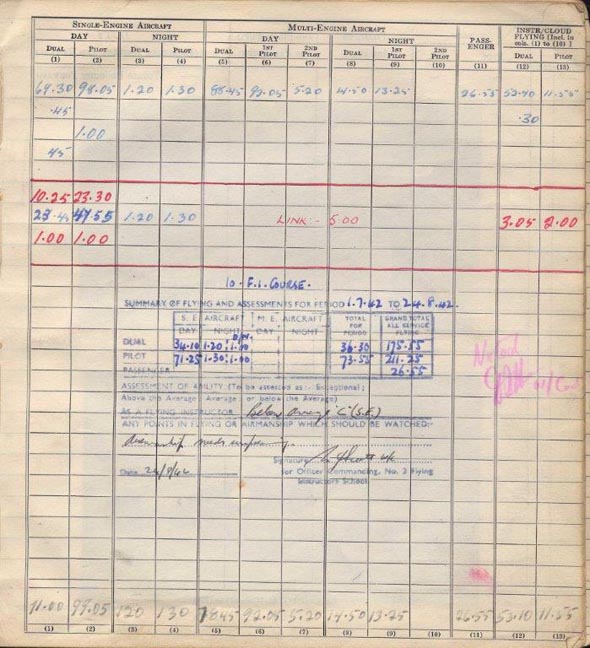 SINGLE-ENGINE AIRCRAFT MULTI-ENGINE AIRCRAFT PASS-ENGER INSTR/CLOUD FLYING [Incl. in cols. (1) to (10)]
DAY NIGHT DAY NIGHT
DUAL PILOT DUAL PILOT DUAL 1ST PILOT 2ND PILOT DUAL 1ST PILOT 2ND PILOT DUAL PILOT
(1) (2) (3) (4) (5) (6) (7) (8) (9) (10) (11) (12) (13)
69.30 98.05 1.20 1.30 88.45 92.05 5.20 14.50 13.25 26.55 52.40 11.55
.45 .30
1.00
45
10.25 23.30
23.45 47.55 1.20 1.30 LINK:- 5.00 3.05 2.00
1.00 1.00
10. F.I. COURSE.
SUMMARY OF FLYING AND ASSESSMENTS FOR PERIOD 1.7.42 TO 24.8.42.
S. E. AIRCRAFT M. E. AIRCRAFT TOTAL FOR PERIOD GRAND TOTAL ALL SERVICE FLYING
DAY NIGHT DAY NIGHT
DUAL 34.10 1.20 1.00 36.30 175.55
PILOT 71.25 1.30 1.00 73.55 211.25
PASSENGER 26.55
ASSESSMENT OF ABILITY (To be assessed as:- Exceptional;
Above the Average; Average; or below the Average)
AS A FLYING INSTRUCTOR below average "C" (S.E.)
ANY POINTS IN FLYING OR AIRMANSHIP WHICH SHOULD BE WATCHED:-
needs
Signature
Date 24/8/42 for Officer Commanding, No. 2 Flying
Instructors School
11.00 99.05 1.20 1.30 92.05 5.20 14.50 13.25 26.55 53.10 11.55
(1) (2) (3) (4) (5) (6) (7) (8) (9) (10) (11) (12) (13)